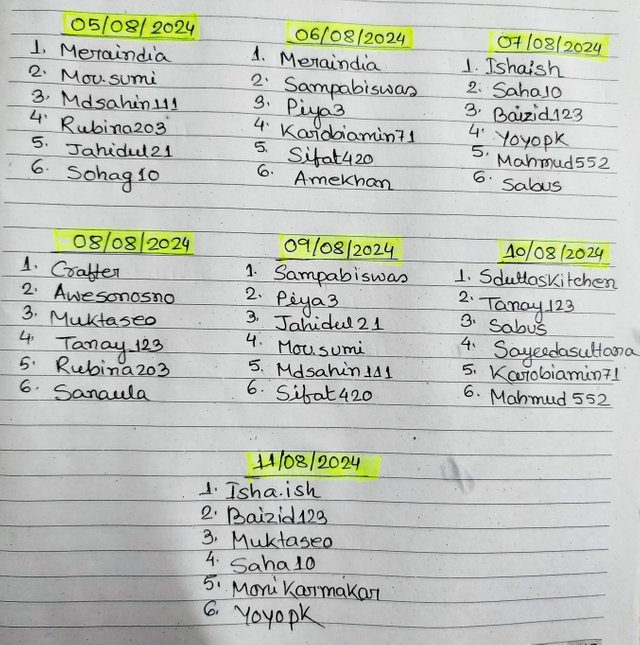 05/08/2024
1. Meraindia
2. Mou.sumi
3. Mdsahin111
4. Rubina203
5. Jahidul21
6. Sohag10
06/08/2024
1. Meraindia
2. Sampabiswas
3. Piya3
4. Karobiamin71
5. Sifat420
6. Amekhan
07/08/2024
1. Ishaish
2. Saha10
3. Baizid123
4. Yoyopk
5. Mahmud552
6. Sabus
08/08/2024
1. Crafter
2. Awesonosno
3. Muktaseo
4. Tanay_123
5. Rubina203
6. Sanaula
09/08/2024
1. Sampabiswas
2. Piya3
3. Jahidul21
4. Mou.sumi
5. Mdsahin111
6. Sifat420
10/08/2024
1. Sduttaskitchen
2. Tanay_123
3. Sabus
4. Sayeedasultana
5. Karobiamin71
6. Mahmud552
11/08/2024
1. Isha.ish
2. Baizid123
3. Muktaseo
4. Saha10
5. Moni Karmakar
6. Yoyopk